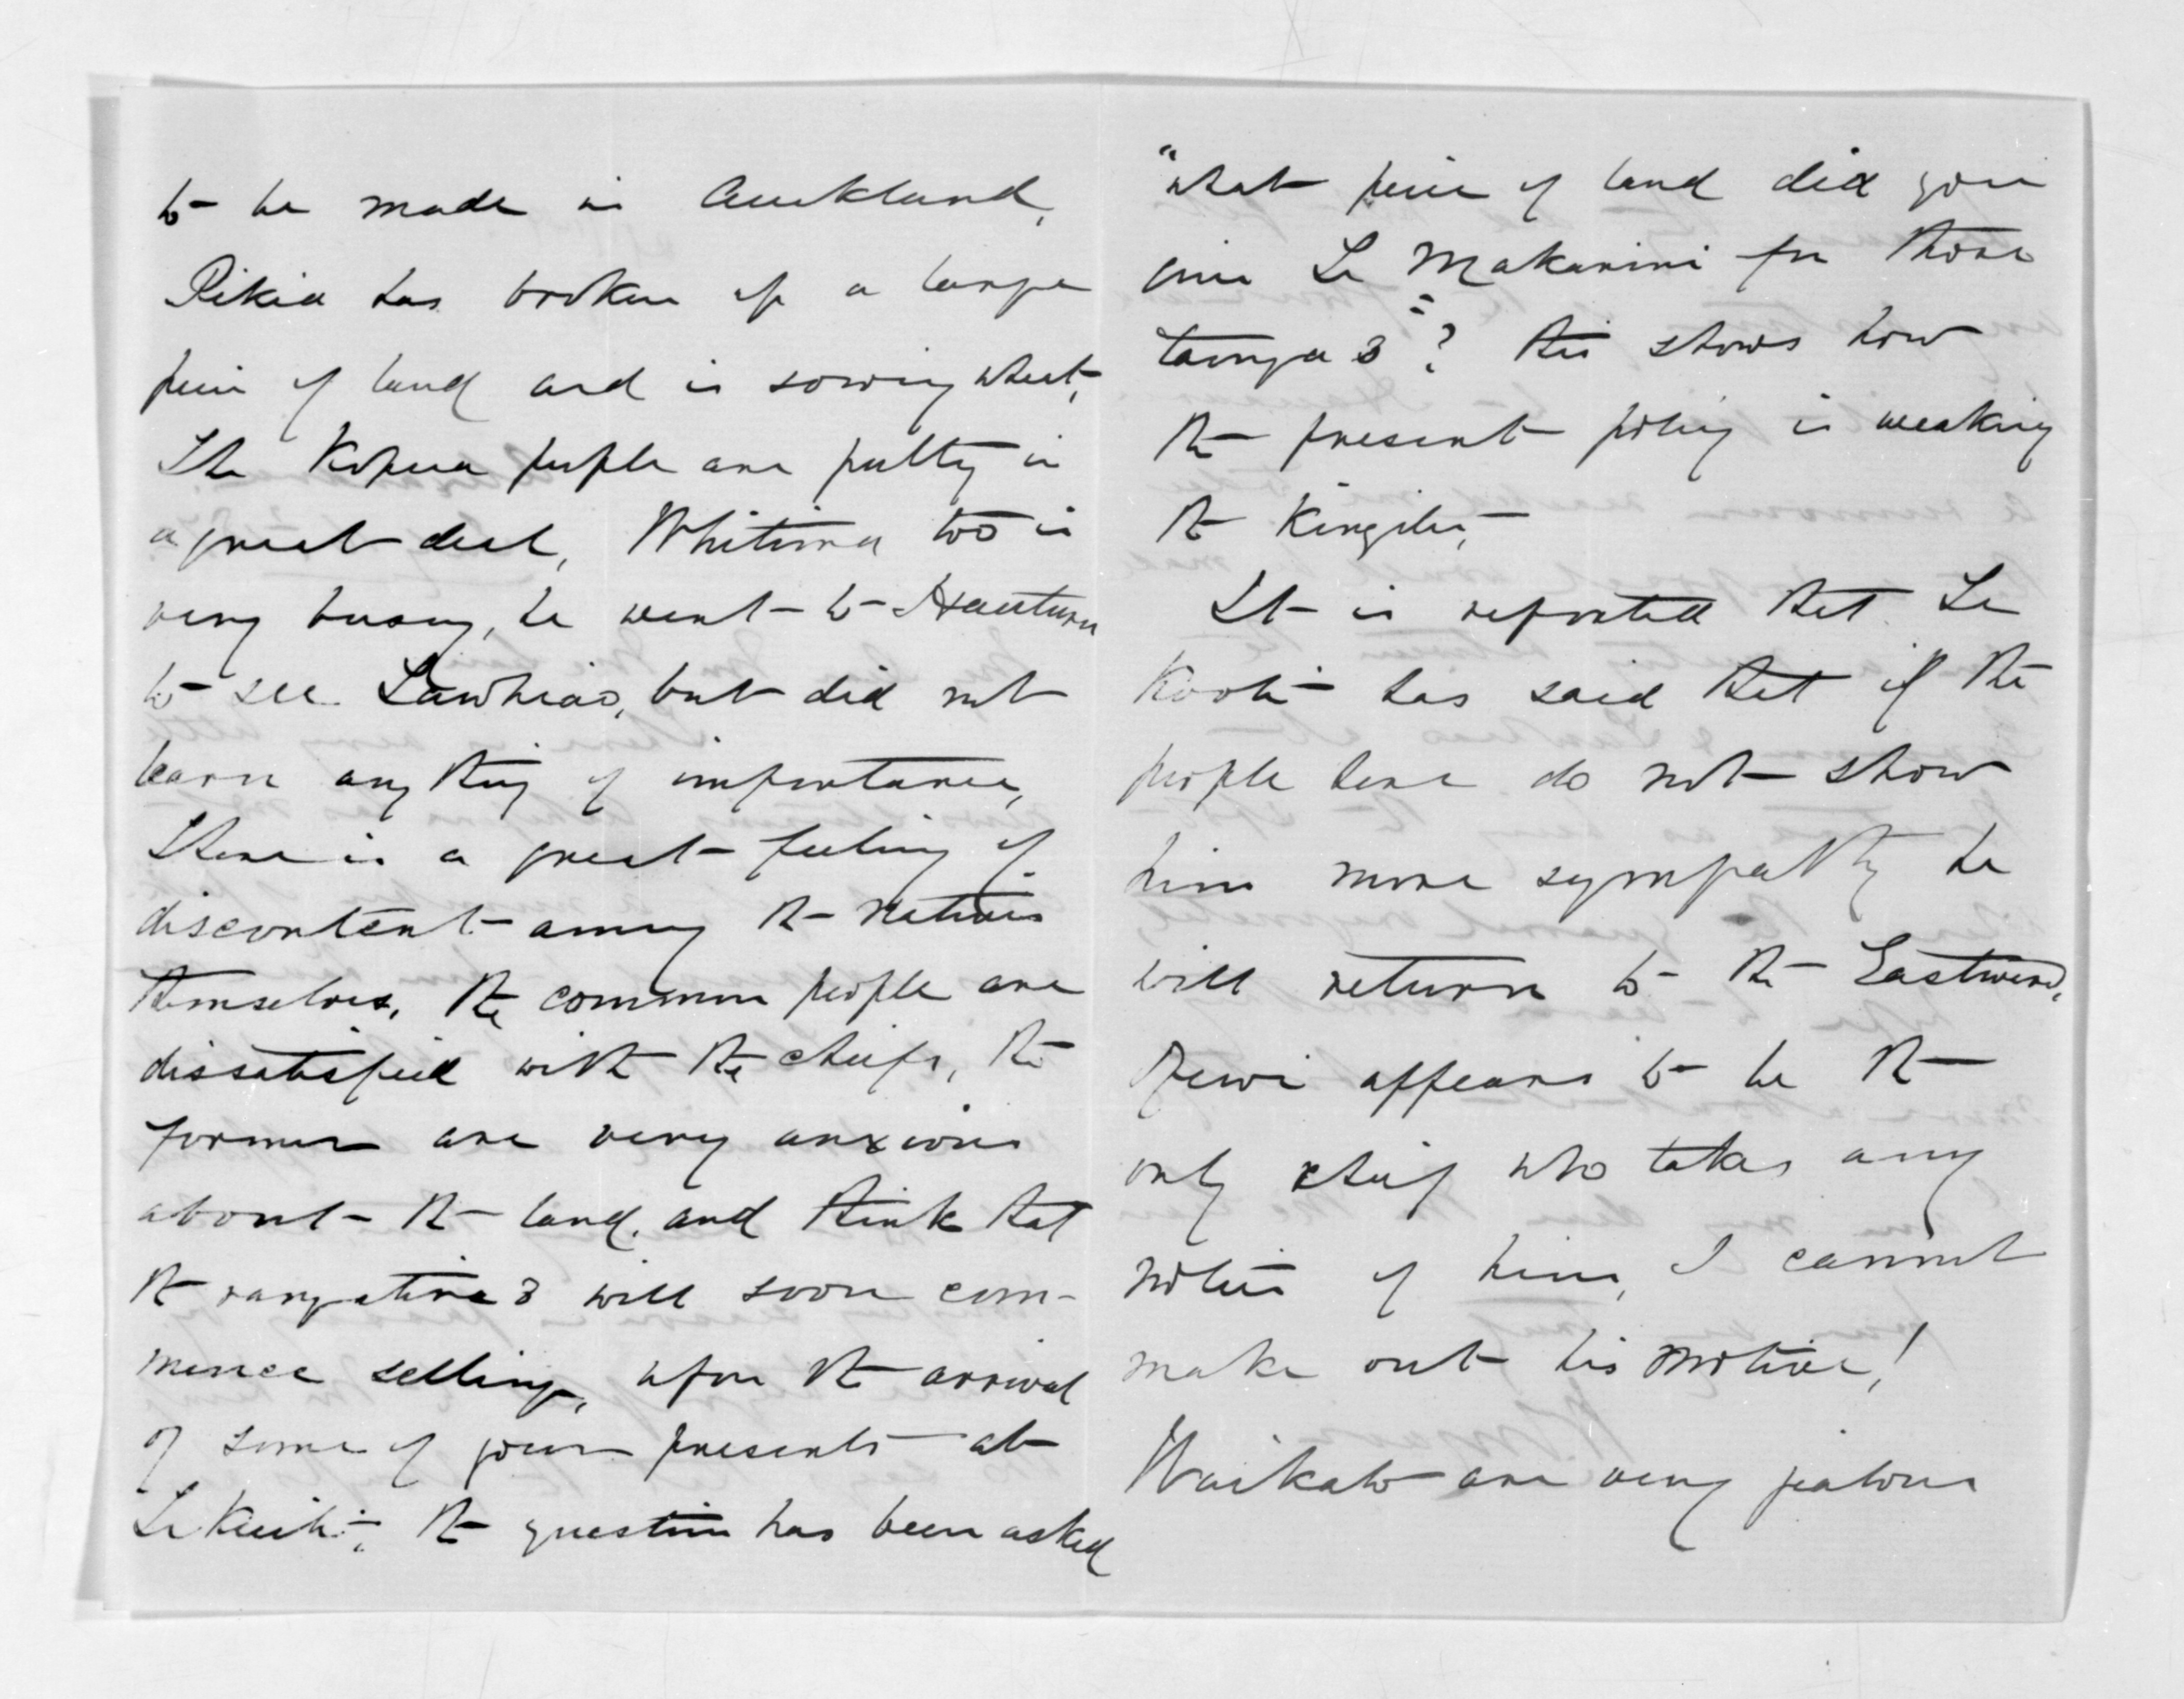 to be made in Auckland,
Pikia has broken up a large
piece of land and is sowing wheat,
The Kopua people are putting in
a great deal, Whitiora too is
very busy, he went to Hauturu
to see Tawhiao, but did not
learn any thing of importance,
There is a great feeling of
discontent among the Natives
themselves, the common people are
dissatisfied with the chiefs, the
former are very anxious
about the land, and think that
the rangatiras will soon com-
mence selling, upon the arrival
of some of your presents at
Te Kuiti, the question has been asked
"what piece of land did you
give Te Makarini for those
taongas"? this shows how
the present policy is weaking
the Kingites,
It is reported that Te
Kooti has said that if the
people here do not show
him more sympathy he
will return to the Eastward,
Rewi appears to be the
only chief who takes any
notice of him, I cannot
make out his motive!
Waikato are very jealous